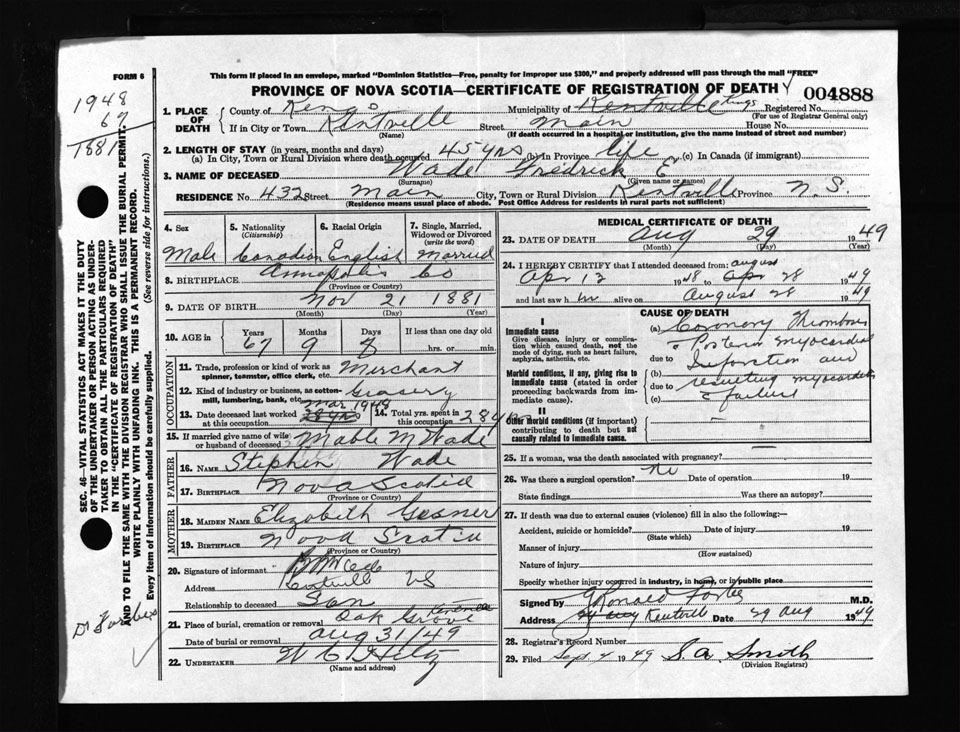 FORM 6
This form if placed in an envelope, marked "Dominion Statistics—Free, penalty for improper use $300," and properly addressed will pass through the mail "FREE"
PROVINCE OF NOVA SCOTIA—CERTIFICATE OF REGISTRATION OF DEATH
004888
1948
67
1881
1. PLACE OF DEATH
County of Kings Municipality of Kentville Kings Registered No.
(For use of Registrar General only)
If in City or Town Kentville Street Main House No.
(Name) (If death occurred in a hospital or institution, give the name instead of street and number)
2. LENGTH OF STAY (in years, months and days)
(a) In City, Town or Rural Division where death occurred 45 yrs (b) In Province life (c) In Canada (if immigrant)
3. NAME OF DECEASED Wade Fredrick E
(Surname) (Given name or names)
RESIDENCE No. 432 Street Main City, Town or Rural Division Kentville Province N.S.
(Residence means usual place of abode. Post Office Address for residents in rural parts not sufficient)
4. Sex 5. Nationality (Citizenship) 6. Racial Origin 7. Single, Married, Widowed or Divorced (write the word)
Male Canadian English Married
8. BIRTHPLACE Annapolis Co
(Province or Country)
9. DATE OF BIRTH Nov 21 1881
(Month) (Day) (Year)
10. AGE in Years Months Days If less than one day old
67 9 8 hrs. or min.
OCCUPATION
11. Trade, profession or kind of work as spinner, teamster, office clerk, etc. Merchant
12. Kind of industry or business, as cotton-mill, lumbering, bank, etc. Grocery
13. Date deceased last worked at this occupation Mar 1949 14. Total yrs. spent in this occupation 28 yrs
15. If married give name of wife or husband of deceased Mable M Wade
FATHER
16. NAME Stephen Wade
17. BIRTHPLACE Nova Scotia
(Province or Country)
MOTHER
18. MAIDEN NAME Elizabeth Gesner
19. BIRTHPLACE Nova Scotia
(Province or Country)
20. Signature of informant
Address Kentville NS
Relationship to deceased Son
21. Place of burial, cremation or removal Oak Grove Kentville
Date of burial or removal Aug 31/49
22. UNDERTAKER W C Hiltz
(Name and address)
MEDICAL CERTIFICATE OF DEATH
23. DATE OF DEATH Aug 29 1949
(Month) (Day) (Year)
24. I HEREBY CERTIFY that I attended deceased from: august
Apr 13 1948 to Apr 28 1949
and last saw him alive on August 28 1949
CAUSE OF DEATH
I
Immediate cause
Give disease, injury or complication which caused death, not the mode of dying, such as heart failure, asphyxia, asthenia, etc.
Morbid conditions, if any, giving rise to immediate cause (stated in order proceeding backwards from immediate cause).
II
Other morbid conditions (if important) contributing to death but not causally related to immediate cause.
(a) Coronary Thrombosis
Posterior myocardial
due to Infarction and
(b) resulting myocardial
due to
(c) failure
25. If a woman, was the death associated with pregnancy?
26. Was there a surgical operation? No Date of operation 19
State findings Was there an autopsy?
27. If death was due to external causes (violence) fill in also the following:—
Accident, suicide or homicide? Date of injury 19
(State which)
Manner of injury
(How sustained)
Nature of injury
Specify whether injury occured in industry, in home, or in public place
Signed by J Ronald Forbes M.D.
Address Kentville Date 29 Aug 1949
28. Registrar's Record Number
29. Filed Sept. 4 1949 S. A. Smith
(Division Registrar)
SEC. 46—VITAL STATISTICS ACT MAKES IT THE DUTY
OF THE UNDERTAKER OR PERSON ACTING AS UNDER-
TAKER TO OBTAIN ALL THE PARTICULARS REQUIRED
IN THE "CERTIFICATE OF REGISTRATION OF DEATH"
AND TO FILE THE SAME WITH THE DIVISION REGISTRAR WHO SHALL ISSUE THE BURIAL PERMIT.
WRITE PLAINLY WITH UNFADING INK. THIS IS A PERMANENT RECORD.
Every item of information should be carefully supplied. (See reverse side for instructions.)
Dr Forbes